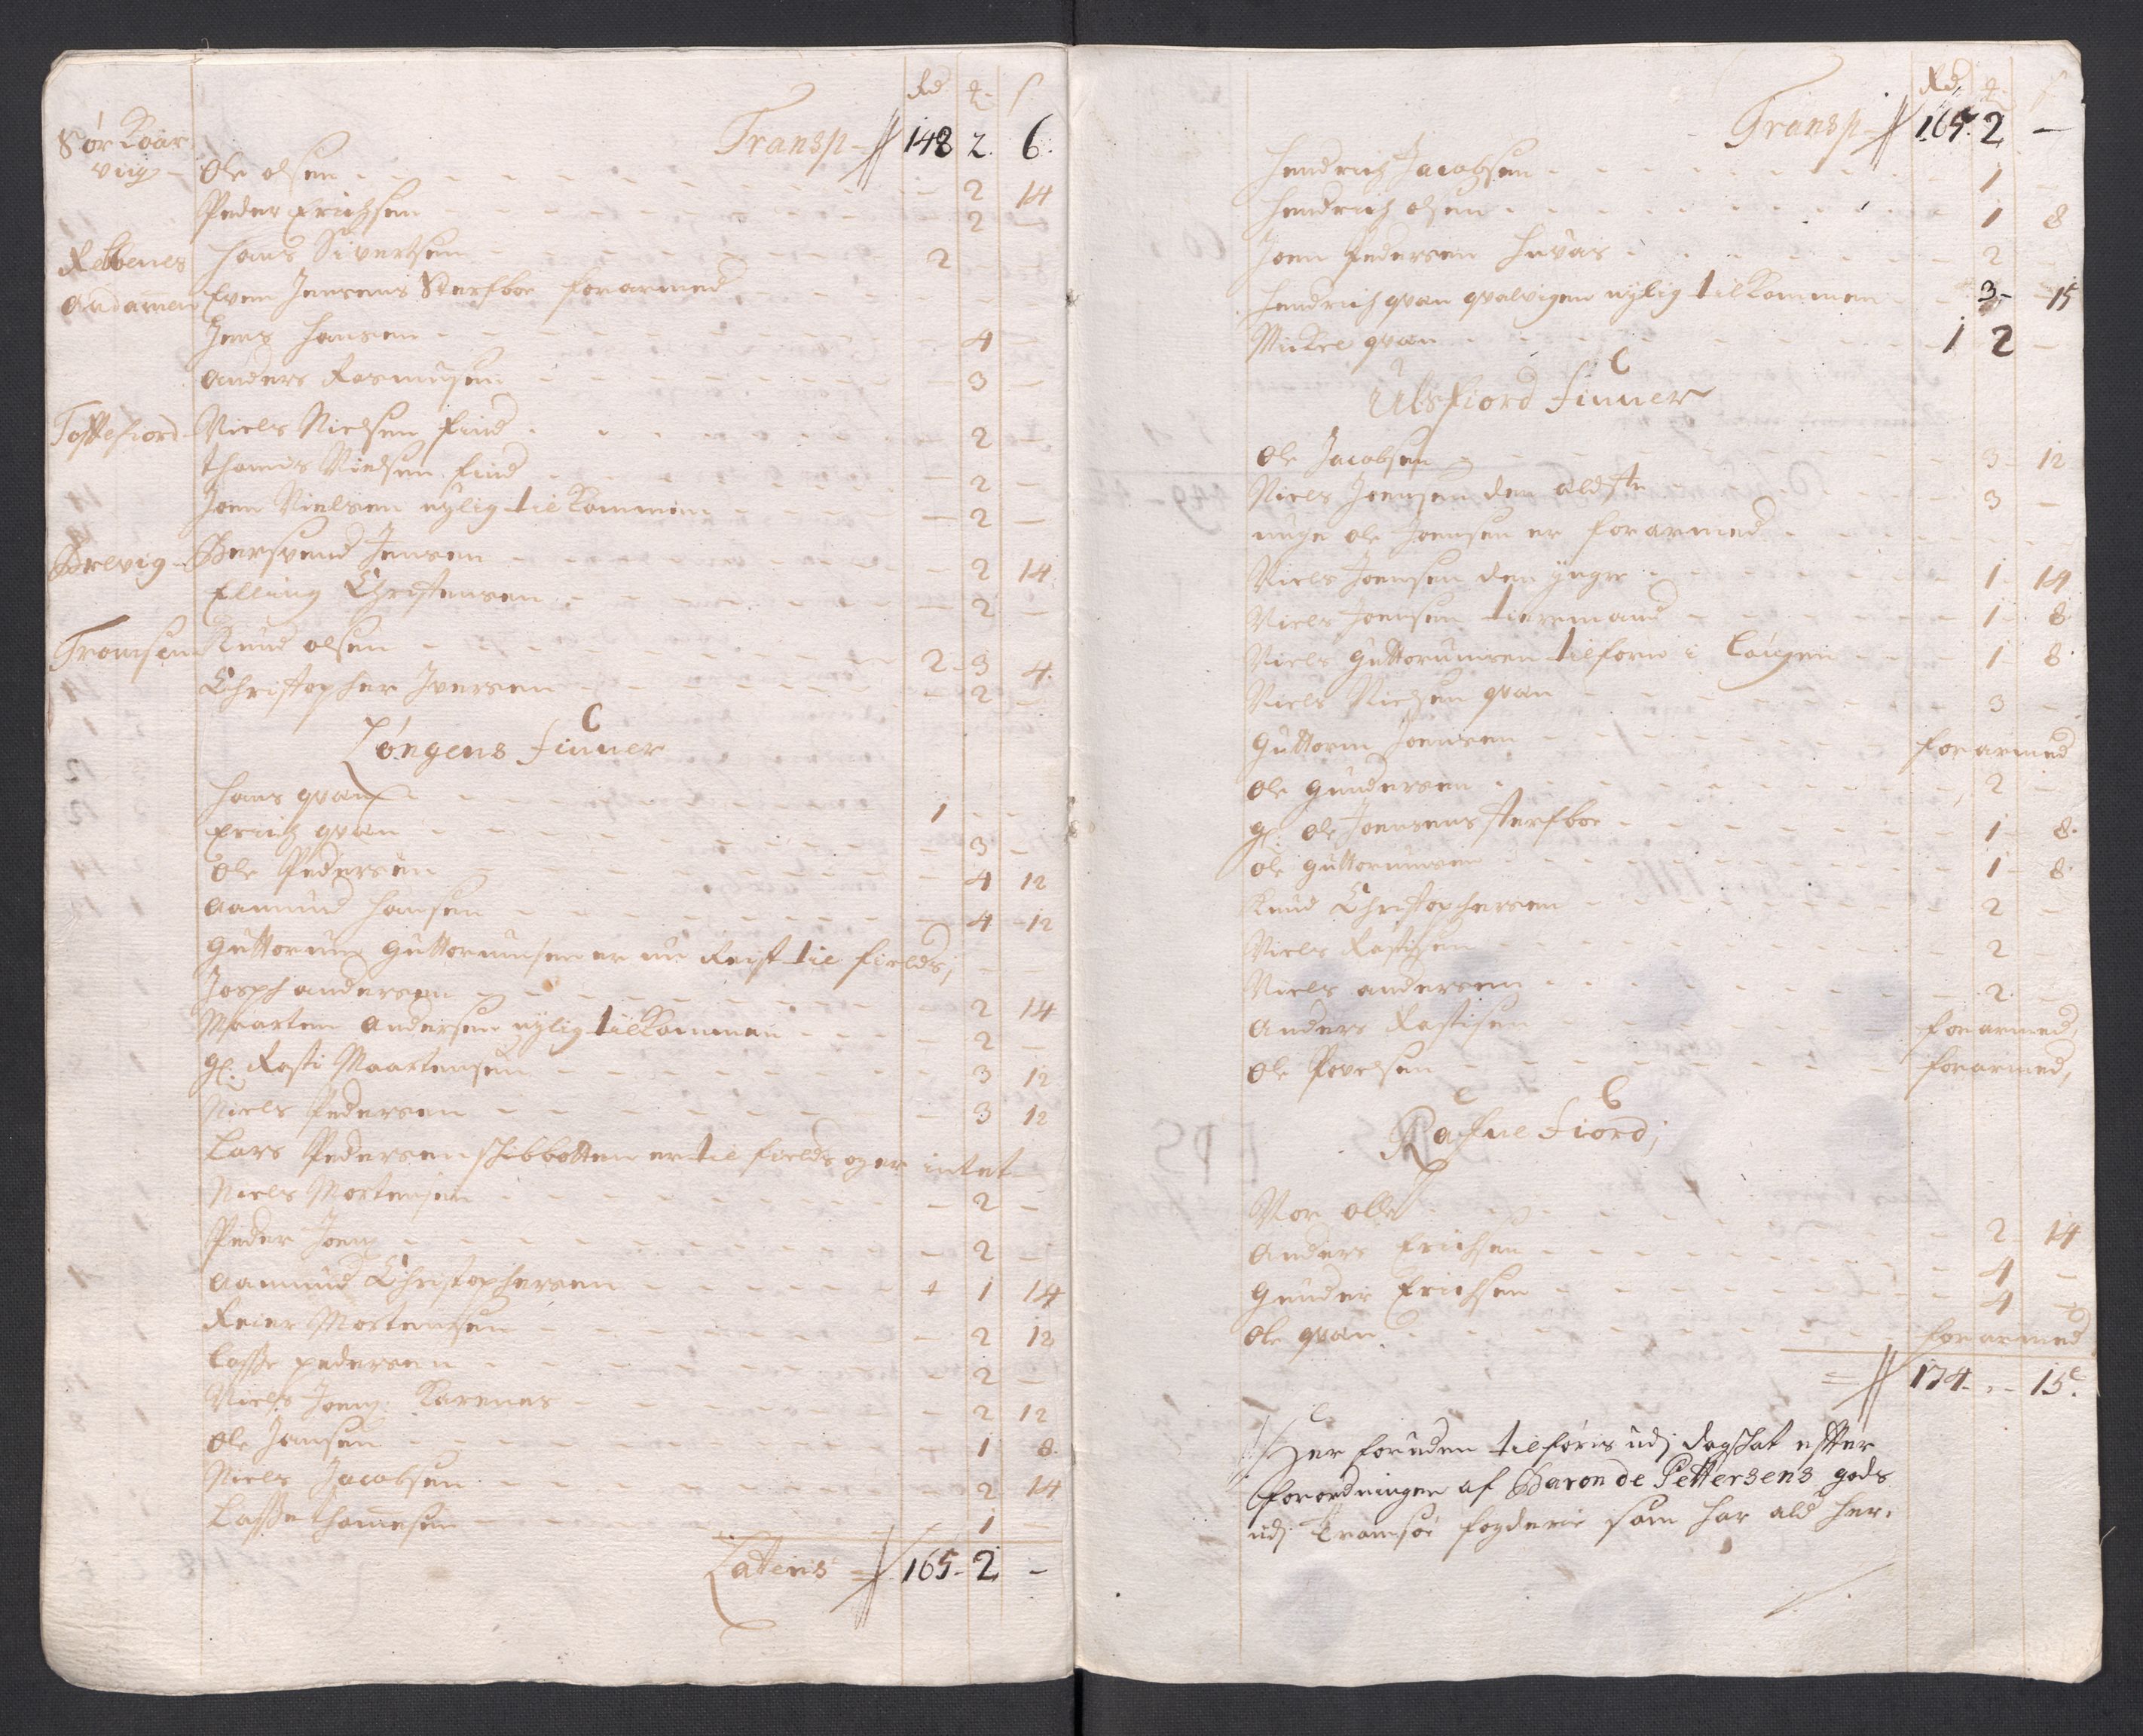 Rd q. s
Transp 148 2. 6.
Sør Koar
viig - Ole olsen - 2 14
Peder Erichsen - 2 -
Rebbenes Hans Sivertsen 2 - -
Andamen Even Jensens Sterfboe forarmed - -
Jens Hansen - 4 -
Anders Rasmusen - 3 -
Toftefiord Niels Nielsen find - 2 -
Thomes Nielsen find - 2 -
Joen Nielsen nylig tilkommen - 2 -
Brevig - Bersvend Jensen - 2 14
Elling Christensen - 2 -
Tromsen Knud olsen 2 - 3 4.
Christopher Iversen - 2 -
Løngens finner
Hans qvan 1 - -
Erich qvan - 3 -
Ole Pedersen - 4 12
Aamund Hansen - 4 - 12
Guttorm Guttormsen er nu Reist til fields; - -
Joseph andersen - 2 14
Maarten Andersen nylig tilkommen - 2 -
gl. Rasti Maartensen - 3 12
Niels Pedersen - 3 12
Lars Pedersen schibbotten er til fields og er intet
Niels Mortensen - 2 -
Peder Joens. - 2 -
Aamund Christophersen + 1 14
Reier Mortensen - 2 12
Lasse pedersen - 2 -
Niels Joens. Karenes - 2 12
Ole Jansen - 1 8.
Niels Jacobsen - 2 14
Lasse Thomesen - 1 -
Latteris 165 - 2 -
Rd q. s
Transp 165. 2 -
Hendrich Jacobsen - 1 -
Hendrich olsen - 1 8
Joen Pedersen Huvas - 2 -
Hendrich qvan qvalvigen nylig tilkommen - 3 - 15
Mickel qvan 1 2 -
Ulsfiord finner
Ole Jacobsen - 3 - 12
Niels Joensen den Eldste - 3 -
unge ole Joensen er forarmed - - -
Niels Joensen den yngre - 1 - 14
Niels Joensen tieremand - 1 - 8
Niels Guttormsen tilforn i Løngen - 1 - 8.
Niels Nielsen qvan - 3 -
Guttorm Joensen - forarmed
Ole Gundersen - 2 -
gl. Ole Joensens sterfboe - 1 - 8.
ole guttormsen - 1 - 8.
Knud Christophersen - 2 -
Niels Rastisen - 2 -
Niels andersen - 2. -
Anders Rastisen - forarmed,
Ole Povelsen - forarmed,
Rafne fiord;
Mor olle - 2 - 14
Anders Erichsen - 4 -
Gunder Erichsen - 4 -
Ole qvan - forarmed
174 - . - 15.
Her foruden tilføris udj dagskat efter
forordningen af Baron de Pettersens gods
udj Tromsøe fogderie som har ald her.